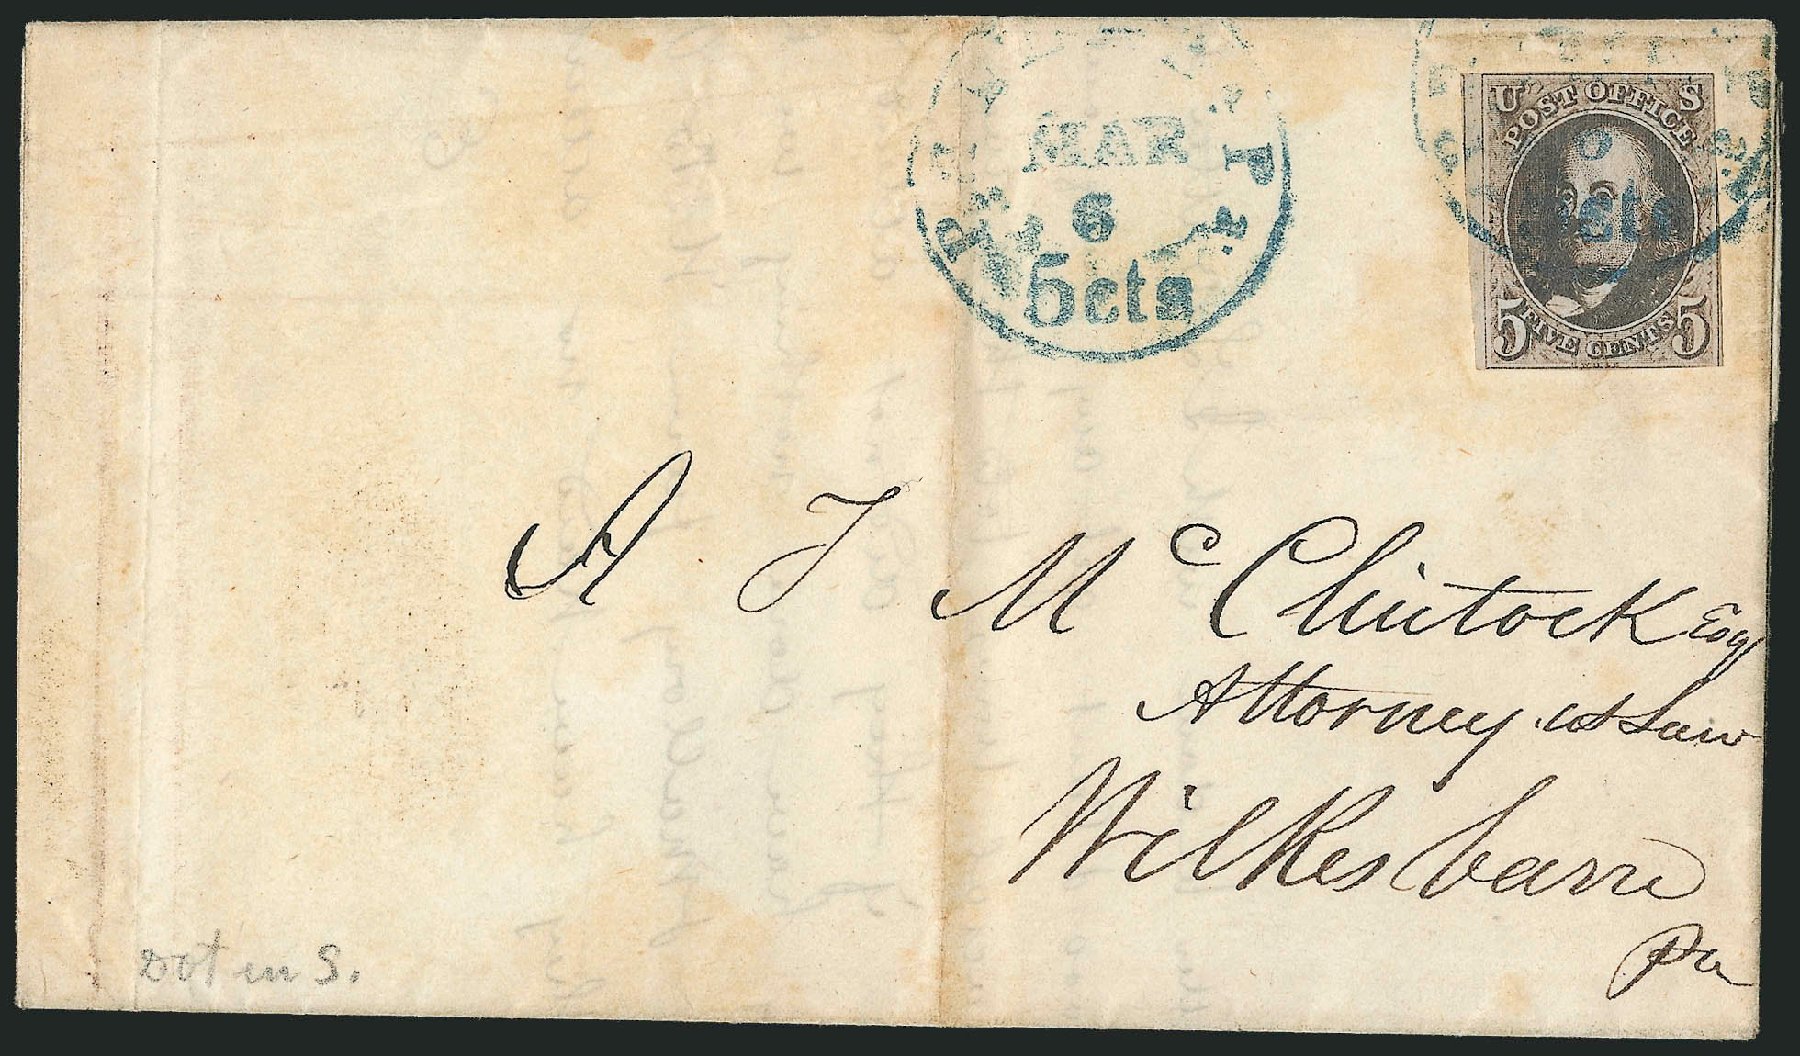 MAR
6
5cts
U S
POST OFFICE
5cts
5 FIVE CENTS 5
A J McClintock Esq
Attorney at Law
Wilkesbarre
Pa
Dot in S.